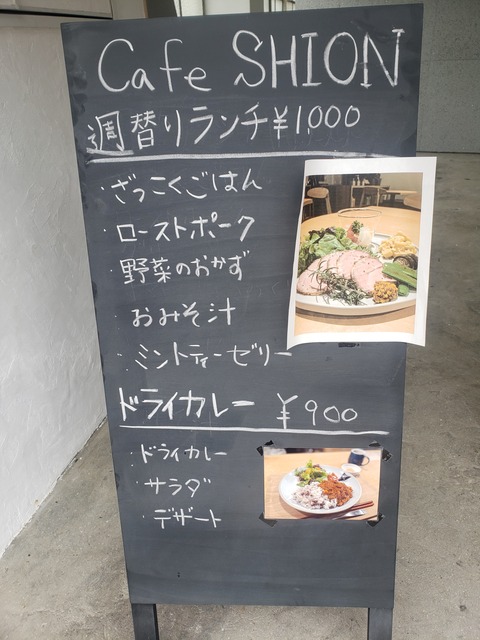 Cafe SHION
週替りランチ¥1000
・ざっこくごはん
・ローストポーク
・野菜のおかず
・おみそ汁
・ミントティーゼリー
ドライカレー ¥900
・ドライカレー
・サラダ
・デザート